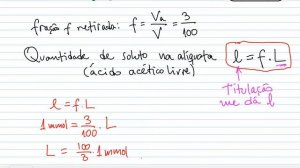 fração f retirada: f = Va/V = 3/100
Quantidade de soluto na alíquota
(ácido acético livre)
l = f . L
Titulação
me dá l
l = f . L
1 mmol = 3/100 . L
L = 100/3 . 1 mmol